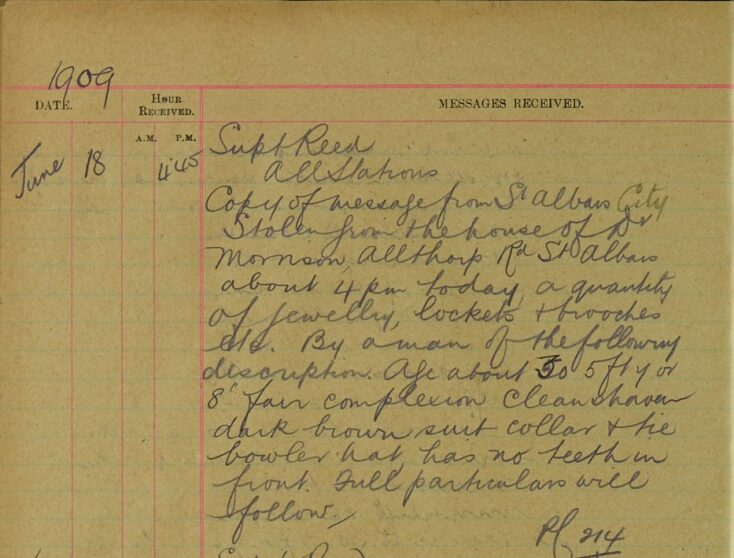 1909
DATE. HOUR RECEIVED. MESSAGES RECEIVED.
A.M. P.M.
June 18 4.45 Supt Reed
All Stations
Copy of message from St Albans City
Stolen from the house of Dr
Morrison, Allthorp Rd St Albans
about 4 pm today, a quantity
of jewellry, lockets & brooches
etc. By a man of the following
description. Age about 30 5 ft 7 or
8" fair complexion clean shaven
dark brown suit collar & tie
bowler hat, has no teeth in
front. Full particulars will
follow,
PC 214